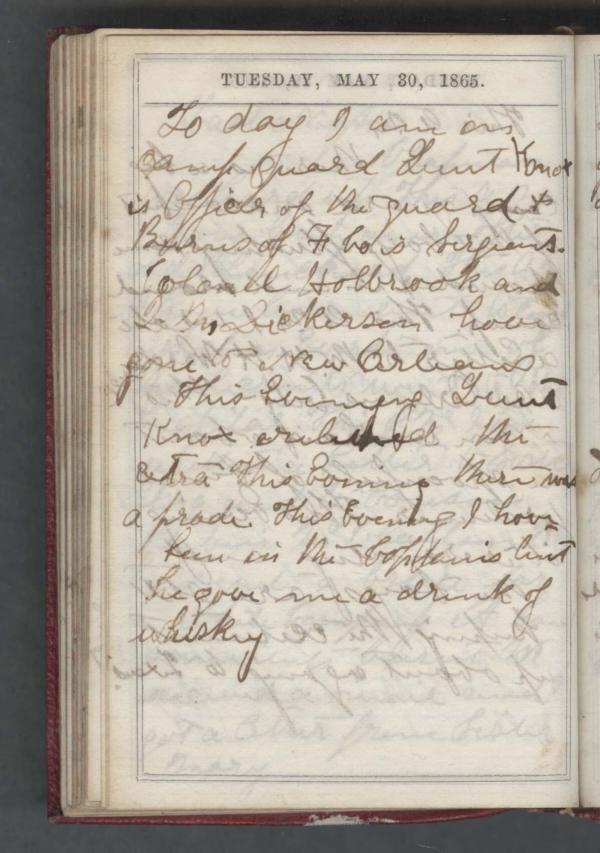 TUESDAY, MAY 30, 1865.
To day I am on
camp guard Leut Knox
is Officer of the guard &
Burns of F Co is Sergent.
Colonel Holbrook and
Dickerson have
gone to New Orleans
This Evening Leut
Knox the
extra This Evening there was
a prade. This Evening I have
been in the Coptains tent
he gove me a drink of
whiskey